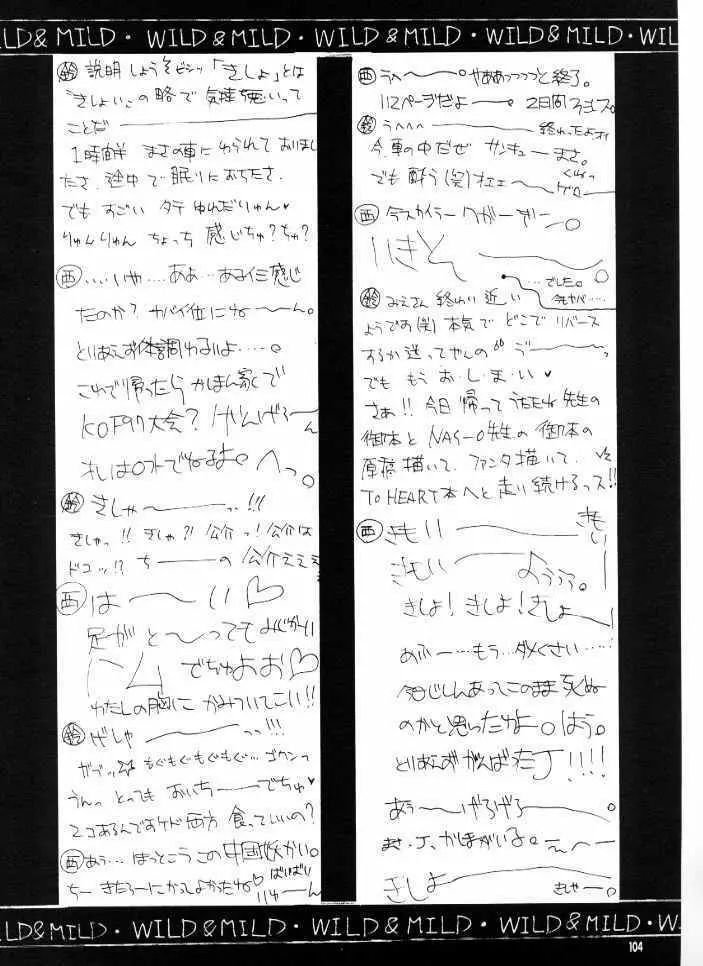 LD & MILD · WILD & MILD · WILD & MILD · WILD & MILD · WIL
鈴 説明しようそビシッ「きしょ」とは
きしょいの略で気持ち悪いって
ことだ
1時間半 まさの車にゆられておりまし
たさ、途中で眠りにおちたさ。
でもすごいタテゆれだりゅん♥
りゅんりゅん ちょっち 感じちゃ?ちゃ?
西 ‥‥いや‥‥ああ‥
たのか? ヤバイ位にねーん。
とりあえず体調わるいよ‥‥。
これで帰ったら かほん家で
KOF97大会? げんげろーん
私は0外でねるよ。へっ。
鈴 きしゃーーっ‥!!!
きしゃっ!! きしゃ?! 公介っ! 公介は
ドコッ!? ちーーの 公介ええ
西 は〜い♡
足がと〜ってもみじかい
ハム でちゅよお♡
わたしの胸に かみついてこい!!
鈴 げしゃーーっっ!!!
もぐもぐもぐもぐ… ゴクンっ
うんっ とっても おいちーーでちゅ♥
2コあるんですケド 両方 食っていいの?
西 あぅ… はっとこう この中国
ちー
鈴
西 うへ〜〜。やああっつつつと終了。
112ページだよー〜。2日間
鈴 うへへへ 〜〜 終わったよオイ
今、車の中だぜ サンキューまさ。
でも酔う(笑)オエェ〜
ゲロー
西 今スカイラークがーずー〜。
いきどーーー。
‥でした。
鈴 みえさん 終わり近い
ようです(笑)本気で どこで リバース
するか迷ってやんの
でも もう お・し・ま・い♥
さあ!! 今日帰って うたたね先生の
御本と NAS-O先生の 御本の
原稿描いて、ファンタ描いて、
TO HEART本へと走り続けるっス!!
西 きもいーーー きもい
きもいーー ようううう。
きしょ! きしょ! きしょー
あふー‥‥もう‥ダメくさい‥‥
今日じしんあってこのまま死ぬ
のかと思ったわよ。はう。
とりあえずがんば!!!!
あぅ〜〜げろげろーー。
きしょーーー
きしゃー。
LD & MILD · WILD & MILD · WILD & MILD · WILD & MILD · W
104